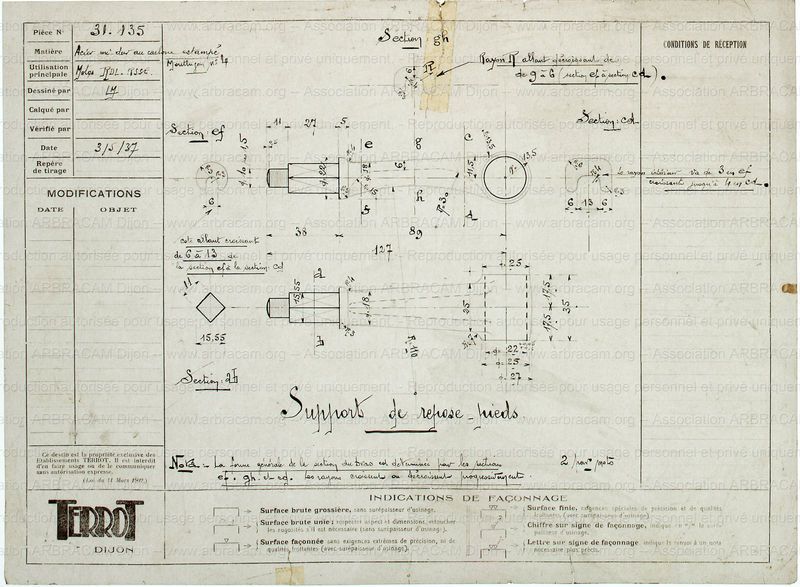 Pièce N° 31.135
Matière Acier mi-dur au carbone estampé
Montluçon n° 4
Utilisation principale Motos RDL. RSSE.
Dessiné par
Calqué par
Vérifié par
Date 3/5/37
Repère de tirage
MODIFICATIONS
DATE OBJET
Section gh
Rayon R allant décroissant de
de 9 à 6 (section ef à section cd).
CONDITIONS DE RÉCEPTION
Section ef
Section: cd
11 27 5
e g c
6
f h d
38 89
127
6 13 6
Le rayon intérieur va de 3 en ef
croissant jusqu'à 4 en cd.
cote allant croissant
de 6 à 13 de
la section ef à la section cd
a
b
11
15,55
15,55
25
25
17,5 17,5
35
R 110
22
25
27
Section: ab
Support de repose-pieds
Nota: La forme générale de la section du bras est déterminée par les sections
ef. gh. et cd. Les rayons croissent ou décroissent progressivement.
2 par moto
Ce dessin est la propriété exclusive des
Établissements TERROT. Il est interdit
d'en faire usage ou de le communiquer
sans autorisation expresse.
(Loi du 11 Mars 1902.)
TERROT
DIJON
INDICATIONS DE FAÇONNAGE
Surface brute grossière, sans surépaisseur d'usinage.
Surface brute unie; respecter aspect et dimensions, retoucher
les rugosités s'il est nécessaire (sans surépaisseur d'usinage).
Surface façonnée sans exigences extrêmes de précision, ni de
qualités frottantes (avec surépaisseur d'usinage).
Surface finie, exigences spéciales de précision et de qualités
frottantes (avec surépaisseur d'usinage).
Chiffre sur signe de façonnage, indique en m/m la surépaisseur d'usinage.
Lettre sur signe de façonnage, indique le renvoi à un nota
nécessaire plus précis.
www.arbracam.org – Association ARBRACAM Dijon – www.arbracam.org
Reproduction autorisée pour usage personnel et privé uniquement.